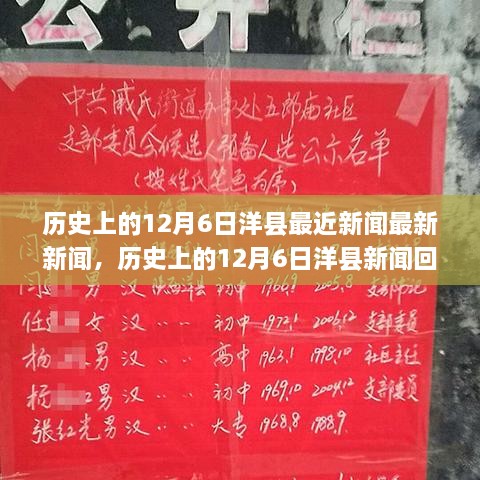 公开栏
中共戚氏街道办事处五郎庙社区
支部委员会候选人预备人选公示名单
(按姓氏笔画为序)
历史上的12月6日洋县最近新闻最新
新闻，历史上的12月6日洋县新闻回
闫 男 汉 陕西洋县 初中 1969.9 2005.8 支部书记
任 女 汉 〃 〃 初中 1972.1 2005.12 支部委员
杨 男 汉 〃 〃 高中 1963.1 1998.10 社区主任
杨 男 汉 〃 〃 初中 1969.10 2004.12 支部委员
张红光 男 汉 〃 〃 大专 1968.8 1988.9